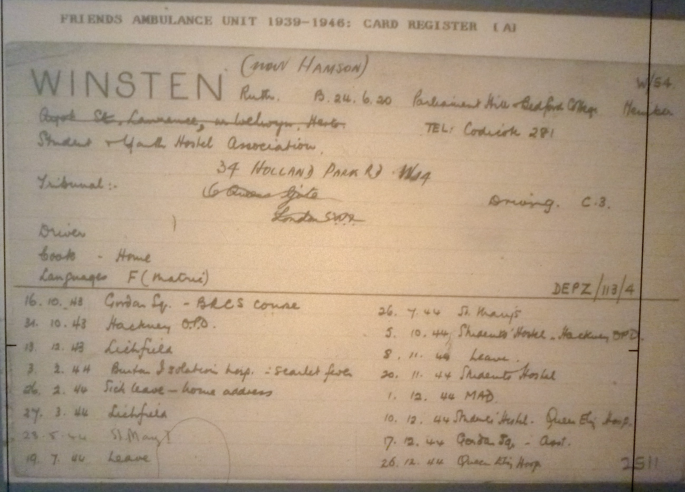 FRIENDS AMBULANCE UNIT 1939-1946: CARD REGISTER (A)
(now HAMSON) W/54
WINSTEN Ruth. B. 24.6.20 Parliament Hill & Bedford College Member
Ayot St. Lawrence, nr Welwyn, Herts. TEL: Codicote 281
Student & Youth Hostel Association.
34 HOLLAND PARK RD W14
Tribunal:- 6 Queens Gate Driving. C.3.
London SW7
Driver
Cook - Home
Languages F (Matric)
DEPZ/113/4
16. 10. 43 Gordon Sq. - BRCS course
31. 10. 43 Hackney O.P.D.
13. 12. 43 Lichfield
3. 2. 44 Burton Isolation hosp. - scarlet fever
26. 2. 44 Sick leave - home address
27. 3. 44 Lichfield
28. 5. 44 St. Mary's
19. 7. 44 Leave
26. 7. 44 St. Mary's
5. 10. 44 Students' Hostel - Hackney OPD.
8. 11. 44 Leave.
20. 11. 44 Students Hostel
1. 12. 44 MAD
10. 12. 44 Students' Hostel. Queen Eliz. Hosp.
17. 12. 44 Gordon Sq -
26. 12. 44 Queen Eliz Hosp.
2511